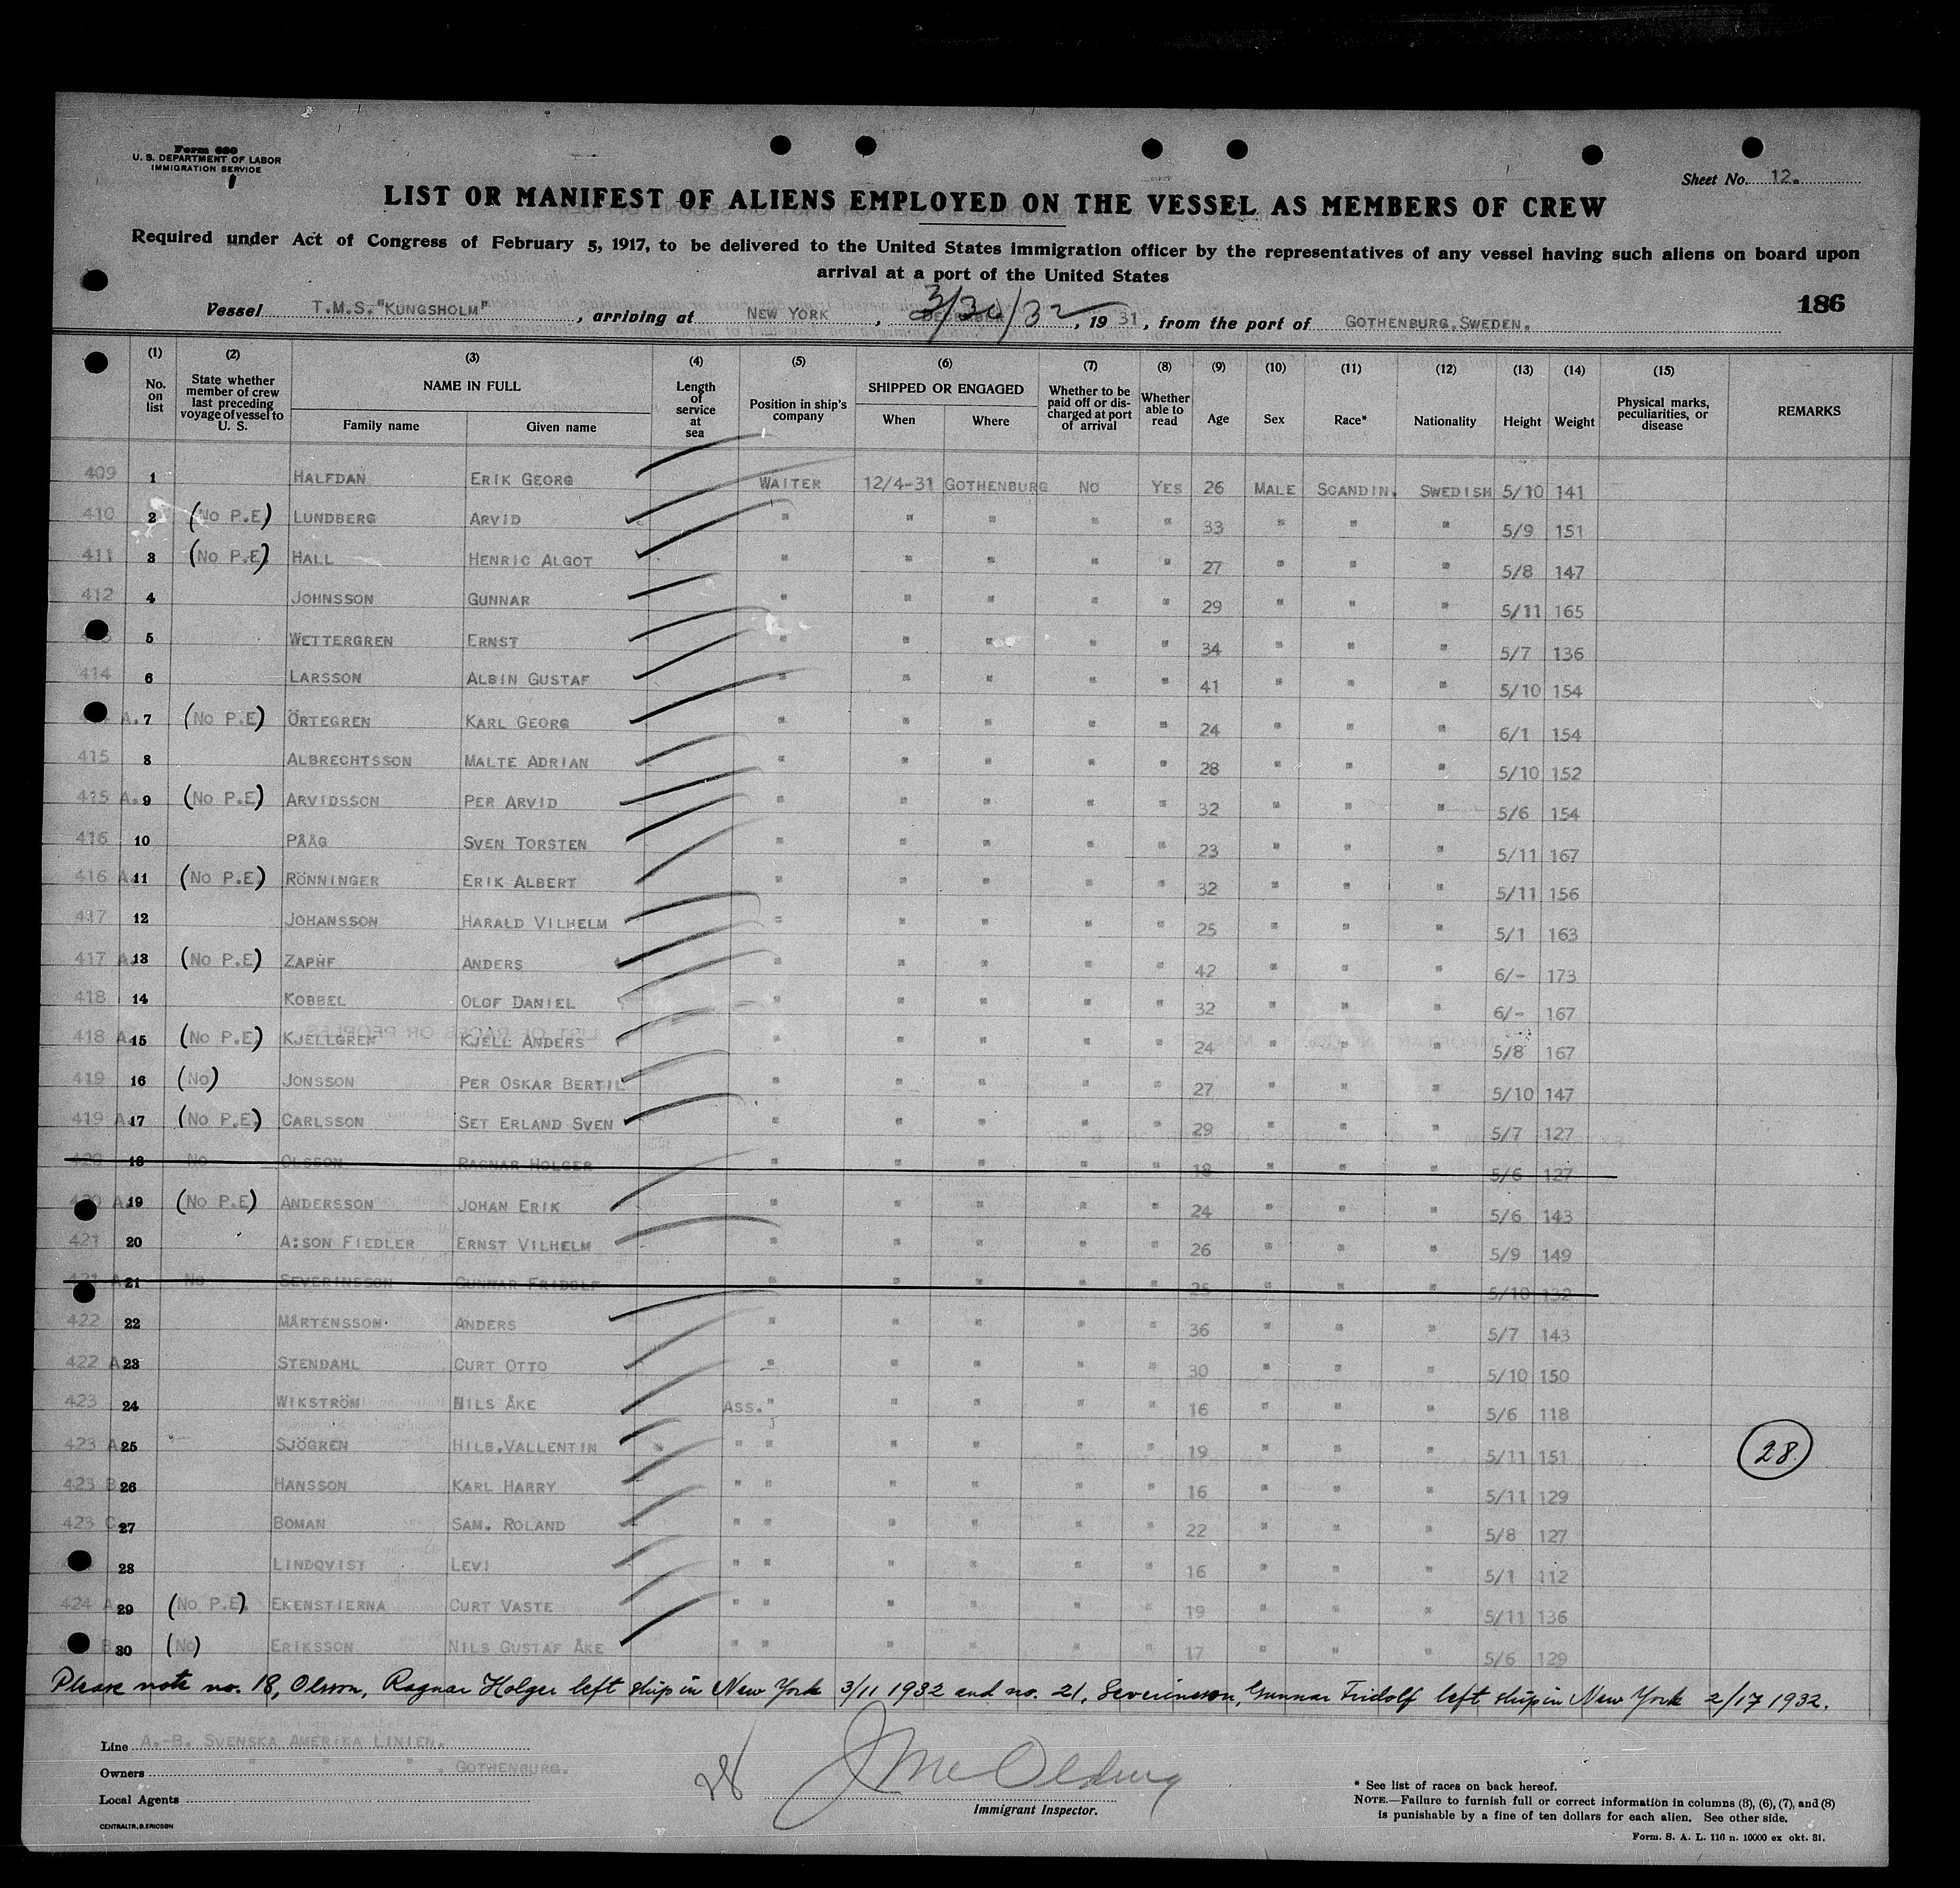 Form 680
U. S. DEPARTMENT OF LABOR
IMMIGRATION SERVICE
Sheet No. 12.
LIST OR MANIFEST OF ALIENS EMPLOYED ON THE VESSEL AS MEMBERS OF CREW
Required under Act of Congress of February 5, 1917, to be delivered to the United States immigration officer by the representatives of any vessel having such aliens on board upon
arrival at a port of the United States
186
Vessel T.M.S."KUNGSHOLM", arriving at NEW YORK, DECEMBER 3/30/32, 1931, from the port of GOTHENBURG,SWEDEN.
(1) No. on list (2) State whether member of crew last preceding voyage of vessel to U. S. (3) NAME IN FULL Family name Given name (4) Length of service at sea (5) Position in ship's company (6) SHIPPED OR ENGAGED When Where (7) Whether to be paid off or discharged at port of arrival (8) Whether able to read (9) Age (10) Sex (11) Race* (12) Nationality (13) Height (14) Weight (15) Physical marks, peculiarities, or disease REMARKS
409 1 HALFDAN ERIK GEORG WAITER 12/4-31 GOTHENBURG NO YES 26 MALE SCANDIN. SWEDISH 5/10 141
410 2 (No P.E) LUNDBERG ARVID " " " " " 33 " " " 5/9 151
411 3 (No P.E) HALL HENRIC ALGOT " " " " " 27 " " " 5/8 147
412 4 JOHNSSON GUNNAR " " " " " 29 " " " 5/11 165
5 WETTERGREN ERNST " " " " " 34 " " " 5/7 136
414 6 LARSSON ALBIN GUSTAF " " " " " 41 " " " 5/10 154
A. 7 (No P.E) ÖRTEGREN KARL GEORG " " " " " 24 " " " 6/1 154
415 8 ALBRECHTSSON MALTE ADRIAN " " " " " 28 " " " 5/10 152
415 A. 9 (No P.E) ARVIDSSON PER ARVID " " " " " 32 " " " 5/6 154
416 10 PÅÅG SVEN TORSTEN " " " " " 23 " " " 5/11 167
416 A. 11 (No P.E) RÖNNINGER ERIK ALBERT " " " " " 32 " " " 5/11 156
417 12 JOHANSSON HARALD VILHELM " " " " " 25 " " " 5/1 163
417 A. 13 (No P.E) ZAPHF ANDERS " " " " " 42 " " " 6/- 173
418 14 KOBBEL OLOF DANIEL " " " " " 32 " " " 6/- 167
418 A. 15 (No P.E) KJELLGREN KJELL ANDERS " " " " " 24 " " " 5/8 167
419 16 (No) JONSSON PER OSKAR BERTIL " " " " " 27 " " " 5/10 147
419 A. 17 (No P.E) CARLSSON SET ERLAND SVEN " " " " " 29 " " " 5/7 127
420 18 No OLSSON RAGNAR HOLGER " " " " " 18 " " " 5/6 127
420 A. 19 (No P.E) ANDERSSON JOHAN ERIK " " " " " 24 " " " 5/6 143
421 20 A:SON FIEDLER ERNST VILHELM " " " " " 26 " " " 5/9 149
421 A 21 No SEVERINSSON GUNNAR FRIDOLF " " " " " 25 " " " 5/10 132
422 22 MÅRTENSSON ANDERS " " " " " 36 " " " 5/7 143
422 A 23 STENDAHL CURT OTTO " " " " " 30 " " " 5/10 150
423 24 WIKSTRÖM NILS ÅKE ASS." " " " " 16 " " " 5/6 118
423 A 25 SJÖGREN HILB.VALLENTIN " " " " " " 19 " " " 5/11 151
28.
423 B 26 HANSSON KARL HARRY " " " " " " 16 " " " 5/11 129
423 C. 27 BOMAN SAM. ROLAND " " " " " " 22 " " " 5/8 127
28 LINDQVIST LEVI " " " " " " 16 " " " 5/1 112
424 A. 29 (No P.E) EKENSTIERNA CURT VASTE " " " " " " 19 " " " 5/11 136
B. 30 (No) ERIKSSON NILS GUSTAF ÅKE " " " " " " 17 " " " 5/6 129
Please note no. 18, Olsson, Ragnar Holger left ship in New York 3/11 1932 and no. 21, Severinsson, Gunnar Fridolf left ship in New York 2/17 1932.
Line A.-B. SVENSKA AMERIKA LINIEN.
Owners " " " . GOTHENBURG.
Local Agents
28
Immigrant Inspector.
* See list of races on back hereof.
NOTE.—Failure to furnish full or correct information in columns (3), (6), (7), and (8)
is punishable by a fine of ten dollars for each alien. See other side.
CENTRALTR. G. ERICSON
Form. S. A. L. 116 n. 10000 ex okt. 31.